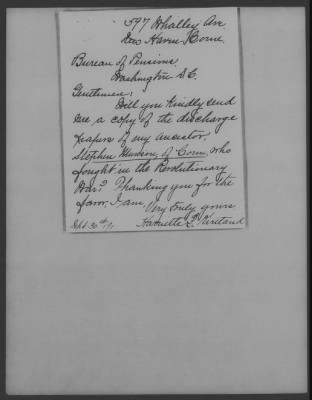 597 Whalley Ave
New Haven Conn.
Bureau of Pensions,
Washington D.C.
Gentlemen:
Will you kindly send
me a copy of the discharge
papers of my ancestor,
Stephen of Conn, who
fought in the Revolutionary
War? Thanking you for the
favor, I am, Very truly yours
Sept. 30th